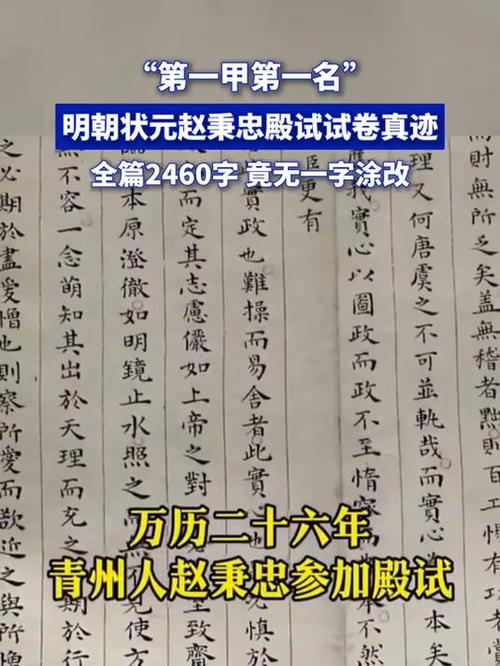 “第一甲第一名”
明朝状元赵秉忠殿试试卷真迹
全篇2460字 竟无一字涂改
而財無所
矣蓋無稽者則百工惟
理又何唐虞之不可並軌哉而
實心以圖政而政不至惰
臣更有
實政也難操而易舍者此實心
而定其志慮儼如上帝之對
本原澄徹如明鏡止水照之
不容一念萌知其出於天理而充之
之必期於盡愛憎也則察所愛而欲近之與所
万历二十六年
青州人赵秉忠参加殿试